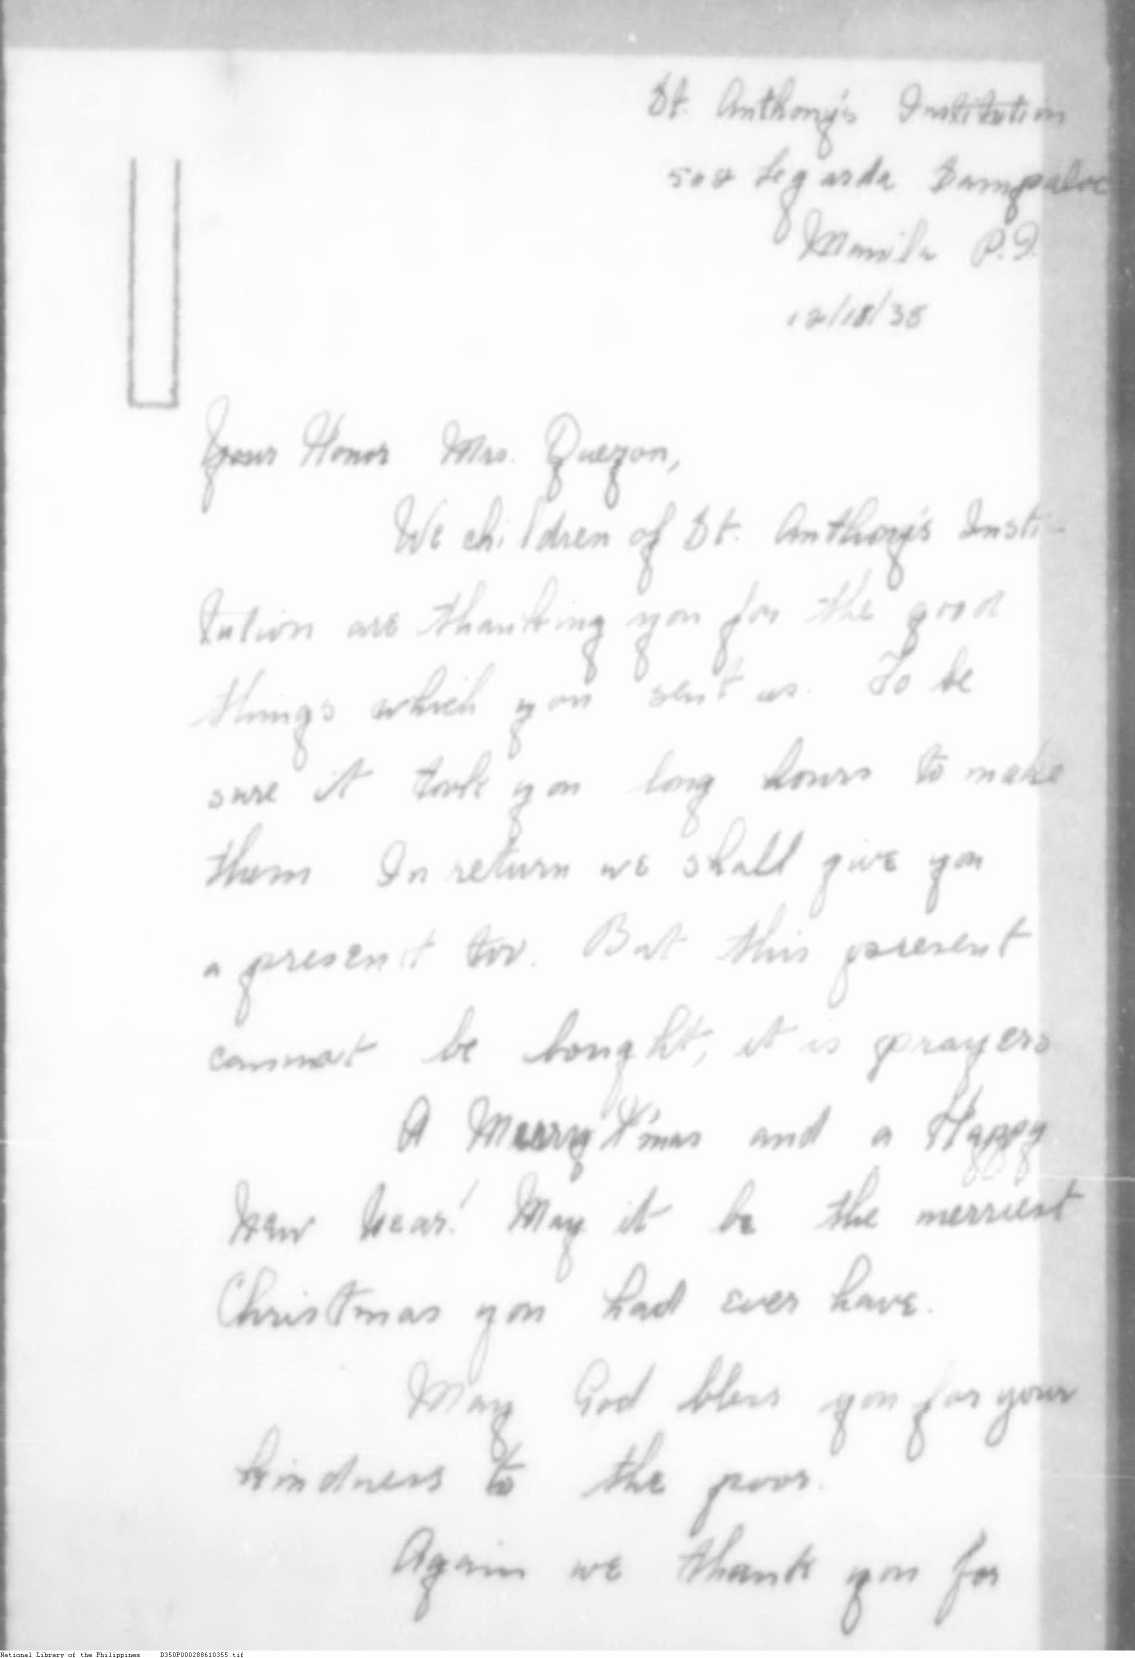 St. Anthony's Institution
502 Legarda Sampaloc
Manila P.I.
12/18/35
Your Honor Mrs. Quezon,
We children of St. Anthony's Insti-
tution are thanking you for the good
things which you sent us. To be
sure it took you long hours to make
them In return we shall give you
a present too. But this present
cannot be bought, it is prayers
A Merry X'mas and a Happy
New Year! May it be the merriest
Christmas you had ever have.
May God bless you for your
kindness to the poor.
Again we thank you for
National Library of the Philippines D350P000288610355.tif